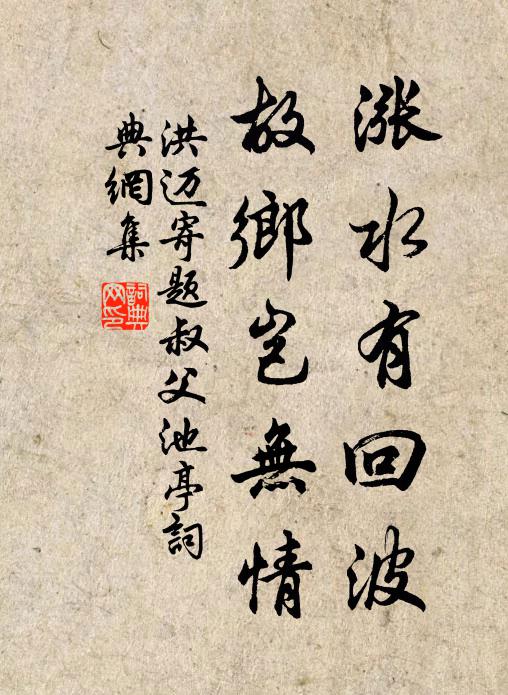 漲水有回波
故鄉豈無情
洪迈寄题叔父池亭詞
典網集
詞典網印